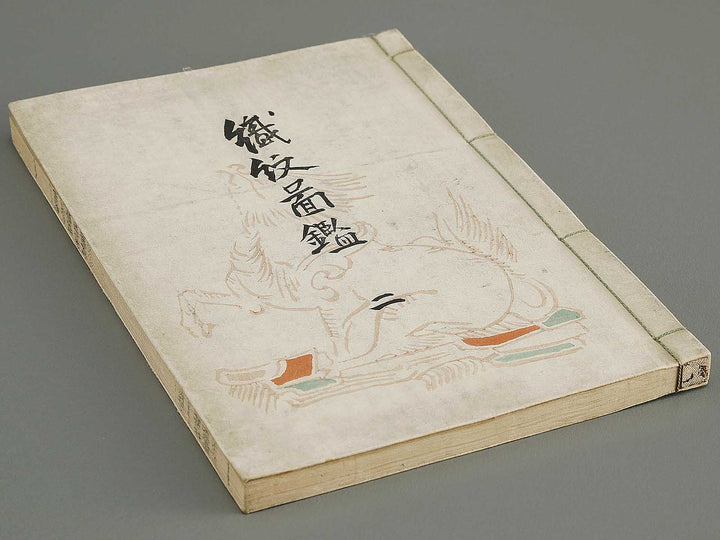 織紋圖鑑
二